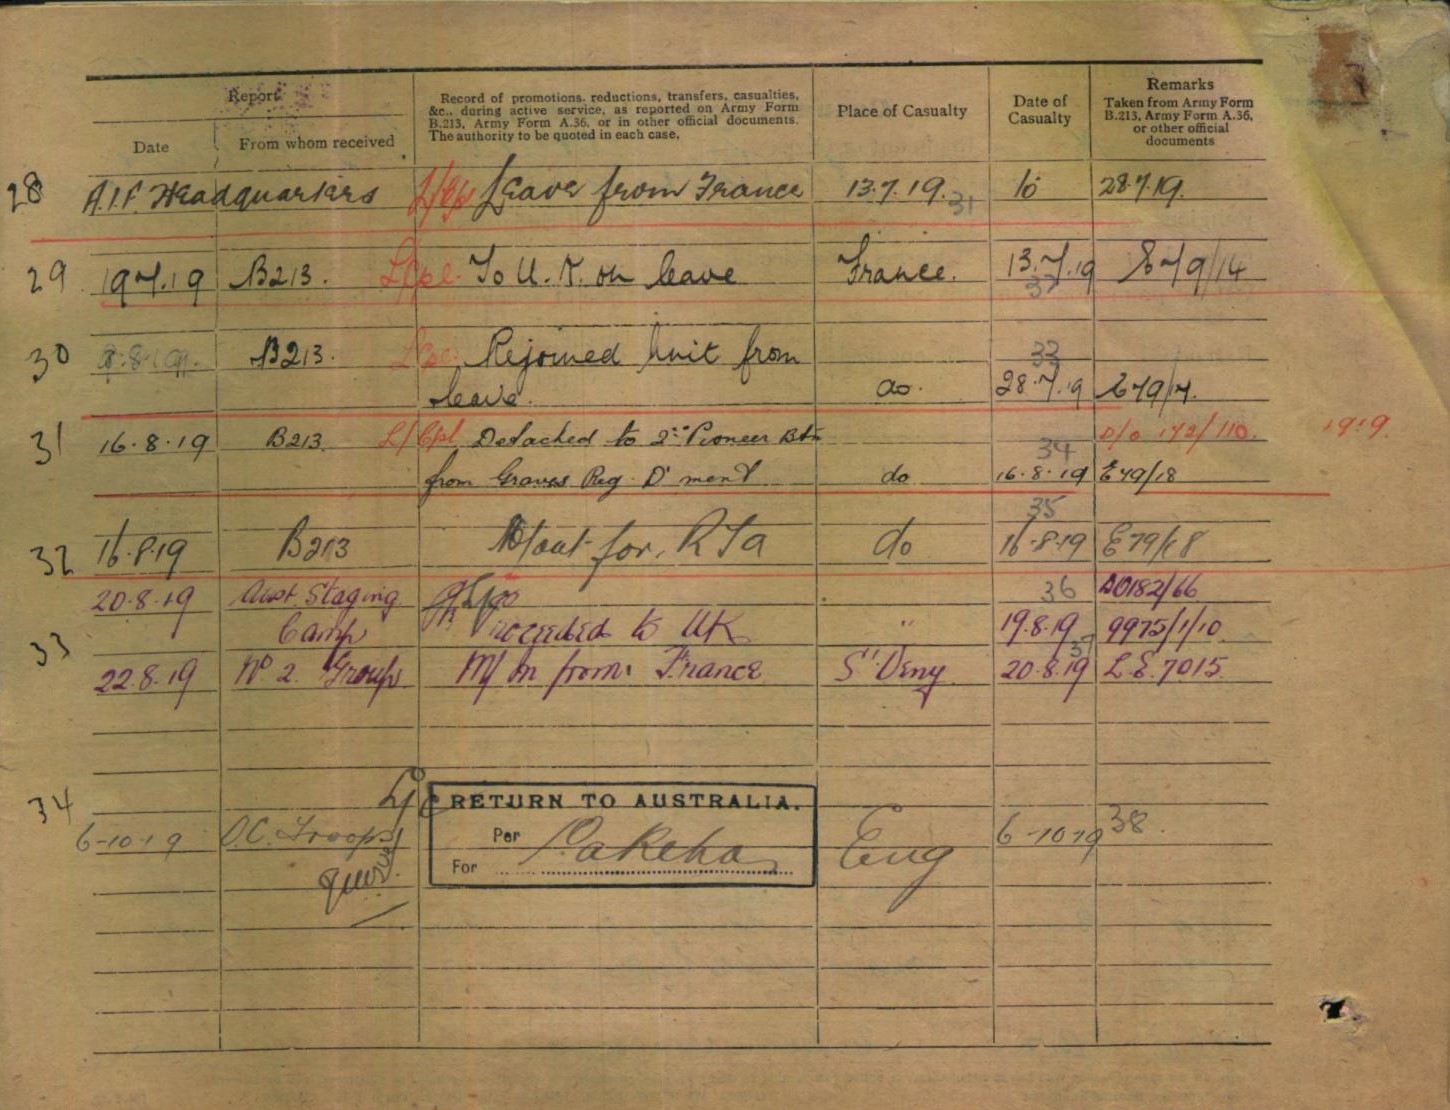 Report
Date
From whom received
Record of promotions, reductions, transfers, casualties,
&c., during active service, as reported on Army Form
B.213, Army Form A.36, or in other official documents.
The authority to be quoted in each case.
Place of Casualty
Date of
Casualty
Remarks
Taken from Army Form
B.213, Army Form A.36,
or other official
documents
28 A.I.F. Headquarters Leave from France 13.7.19. to 28.7.19.
31
29 19.7.19 B213. L/Cpl. To U.K. on leave France. 13.7.19 E79/14
30 B213. L/Cpl. Rejoined Unit from
33
leave. do. 28.7.19
31 16.8.19 B213. L/Cpl Detached to 2nd Pioneer Btn D/O 172/110. 1919.
34
from Graves Reg. D'ment do 16.8.19 E79/18
35
32 16.8.19 B213 M/out for R T a do 16.8.19 E79/18
20.8.19 Aust. Staging 36 DO182/66
33 Camp Proceeded to UK " 19.8.19 9975/1/10
37
22.8.19 No 2. Group M/In from France 20.8.19 L.E.7015
34
RETURN TO AUSTRALIA.
6-10-19 O.C. Troops Per Pakeha Eng 6-10-19 38.
For